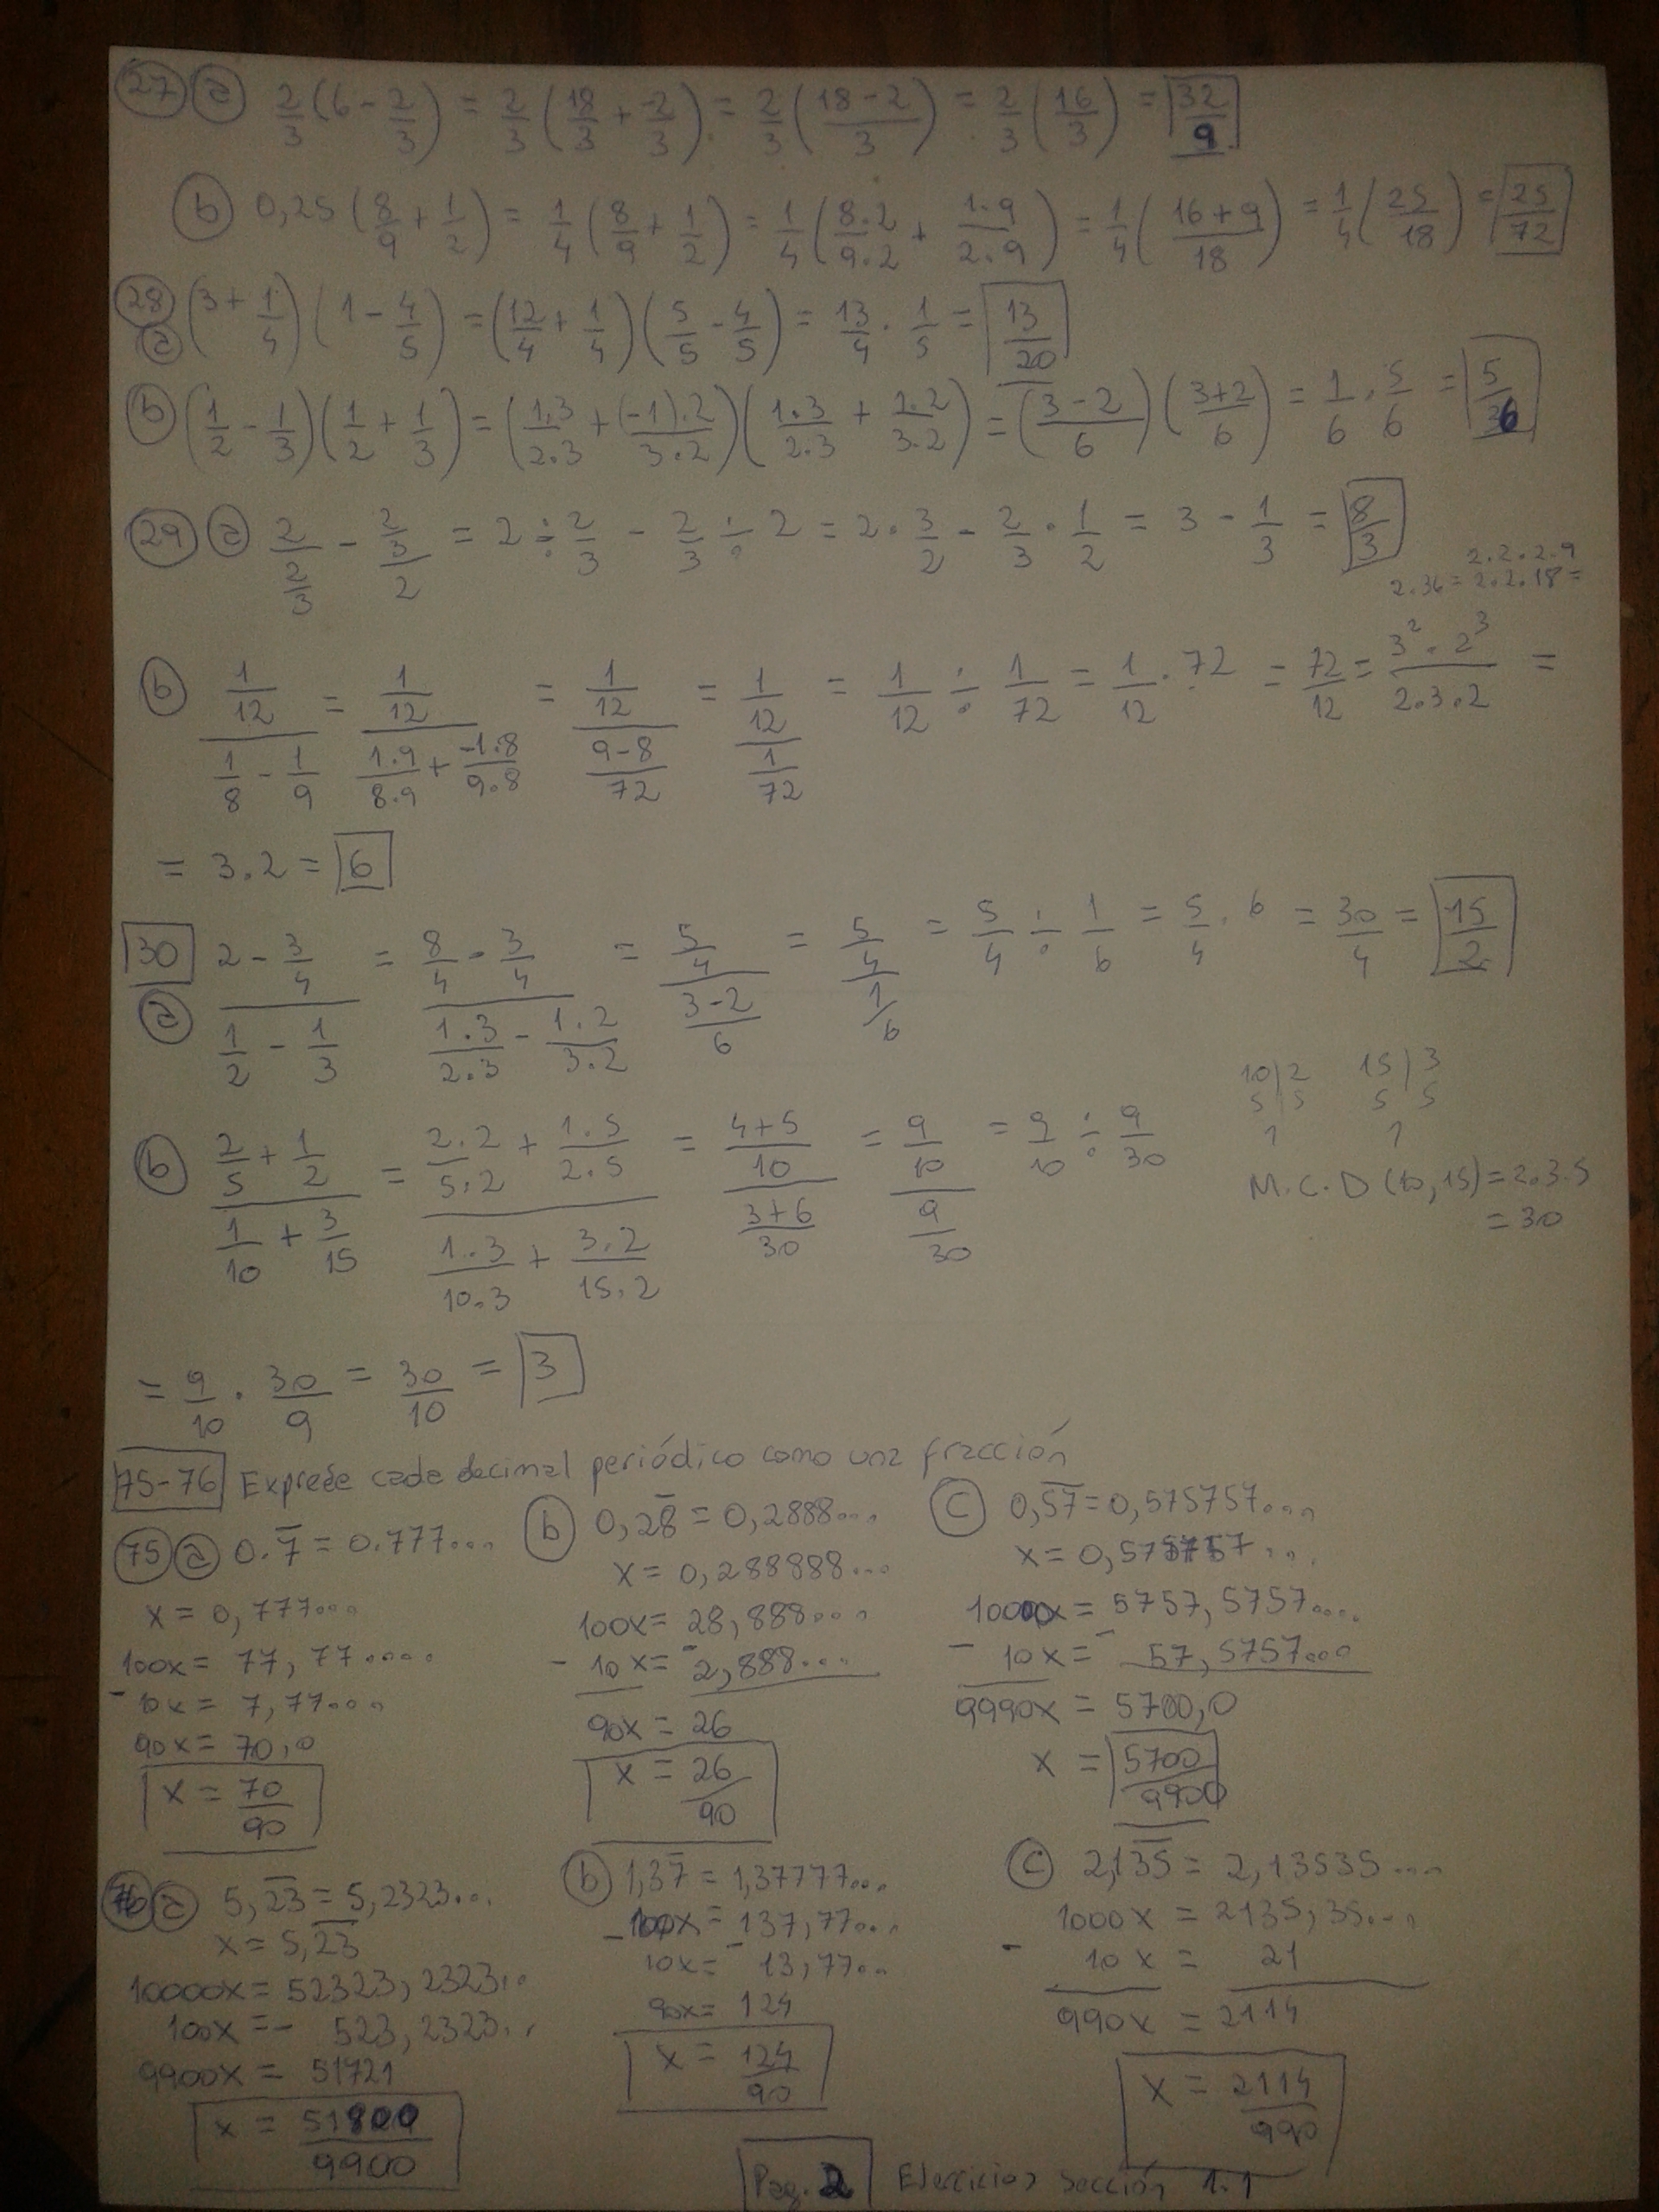 27 a 2/3 (6 - 2/3) = 2/3 (18/3 + -2/3) = 2/3 ((18-2)/3) = 2/3 (16/3) = 32/9
b 0,25 (8/9 + 1/2) = 1/4 (8/9 + 1/2) = 1/4 (8.2/9.2 + 1.9/2.9) = 1/4 ((16+9)/18) = 1/4 (25/18) = 25/72
28 a (3 + 1/4) (1 - 4/5) = (12/4 + 1/4) (5/5 - 4/5) = 13/4 . 1/5 = 13/20
b (1/2 - 1/3) (1/2 + 1/3) = (1.3/2.3 + (-1).2/3.2) (1.3/2.3 + 1.2/3.2) = ((3-2)/6) ((3+2)/6) = 1/6 . 5/6 = 5/36
29 a 2/(2/3) - (2/3)/2 = 2 ÷ 2/3 - 2/3 ÷ 2 = 2 . 3/2 - 2/3 . 1/2 = 3 - 1/3 = 8/3
2.2.2.9
2.36 = 2.2.18 =
b (1/12)/(1/8 - 1/9) = (1/12)/(1.9/8.9 + -1.8/9.8) = (1/12)/((9-8)/72) = (1/12)/(1/72) = 1/12 ÷ 1/72 = 1/12 . 72 = 72/12 = (3² . 2³)/(2.3.2) =
= 3.2 = 6
30 a (2 - 3/4)/(1/2 - 1/3) = (8/4 - 3/4)/(1.3/2.3 - 1.2/3.2) = (5/4)/((3-2)/6) = (5/4)/(1/6) = 5/4 ÷ 1/6 = 5/4 . 6 = 30/4 = 15/2
b (2/5 + 1/2)/(1/10 + 3/15) = (2.2/5.2 + 1.5/2.5)/(1.3/10.3 + 3.2/15.2) = ((4+5)/10)/((3+6)/30) = (9/10)/(9/30) = 9/10 ÷ 9/30
10|2 15|3
5|5 5|5
1 1
M.C.D (10,15) = 2.3.5
= 30
= 9/10 . 30/9 = 30/10 = 3
75-76 Exprese cada decimal periódico como una fracción
75 a 0.7̅ = 0.777...
x = 0,777...
100x = 77,77.....
- 10x = 7,77...
90x = 70,0
x = 70/90
b 0,28̅ = 0,2888...
x = 0,288888...
100x = 28,888...
- 10x = - 2,888...
90x = 26
x = 26/90
c 0,5̅7̅ = 0,575757...
x = 0,575757...
10000x = 5757,5757....
- 10x = - 57,5757...
9990x = 5700,0
x = 5700/9900
76 a 5,2̅3̅ = 5,2323...
x = 5,2̅3̅
10000x = 52323,2323..
100x = - 523,2323..
9900x = 51721
x = 51800/9900
b 1,37̅ = 1,37777...
100x = 137,77...
- 10x = - 13,77..
90x = 124
x = 124/90
c 2,13̅5̅ = 2,13535....
1000x = 2135,35....
- 10x = 21
990x = 2114
x = 2114/990
Pag. 2 Ejercicios sección 1.1